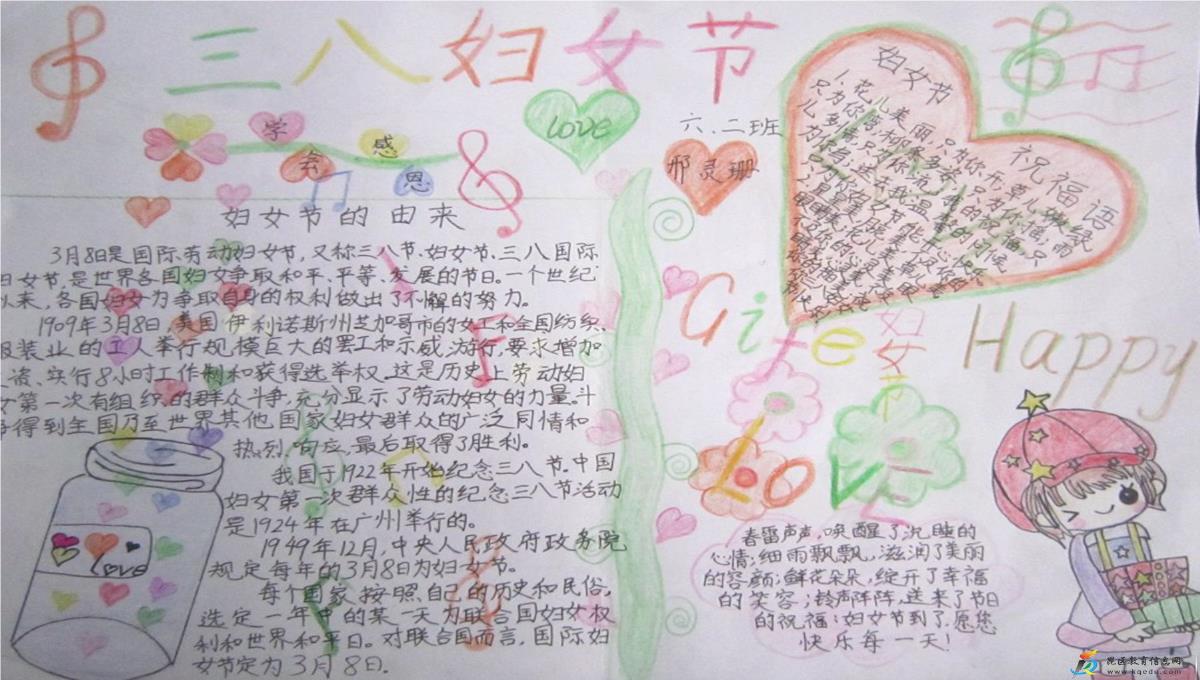 三八妇女节
学会感恩
LOVE
六.二班
邢灵珊
妇女节的由来
3月8日是国际劳动妇女节,又称三八节.妇女节.三八国际
妇女节.是世界各国妇女争取和平、平等、发展的节日。一个世纪
以来,各国妇女为争取自身的权利做出了不懈的努力。
1909年3月8日,美国伊利诺斯州芝加哥市的女工和全国纺织.
服装业的工人举行规模巨大的罢工和示威游行,要求增加
工资、实行8小时工作制和获得选举权.这是历史上劳动妇
女第一次有组织的群众斗争,充分显示了劳动妇女的力量.斗
争得到全国乃至世界其他国家妇女群众的广泛同情和
热烈.响应,最后取得了胜利。
我国于1922年开始纪念三八节.中国
妇女第一次群众性的纪念三八节活动
是1924年在广州举行的。
1949年12月,中央人民政府政务院
规定每年的3月8日为妇女节。
每个国家按照自己的历史和民俗,
选定一年中的某一天为联合国妇女权
利和世界和平日。对联合国而言,国际妇
女节定为3月8日.
Love
妇女节
祝福语
1.花儿美丽,只为你开,
妇女节
Happy
Love
春雷声声,唤醒了沉睡的
心情;细雨飘飘,滋润了美丽
的容颜;鲜花朵朵,绽开了幸福
的笑容;铃声阵阵,送来了节日
的祝福:妇女节到了,愿您
快乐每一天!
www.kqedu.com